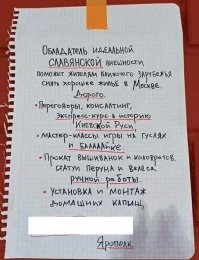 Обладатель идеальной
славянской внешности
поможет жителям ближнего зарубежья
снять хорошее жильё в Москве.
Дорого.
• Переговоры, консалтинг,
экспресс-курс в историю
Киевской Руси,
• Мастер-классы игры на гуслях
и балалайке.
• Прокат вышиванок и коловратов,
статуи Перуна и Велеса
ручной работы.
• Установка и монтаж
домашних капищ.
Ярополк